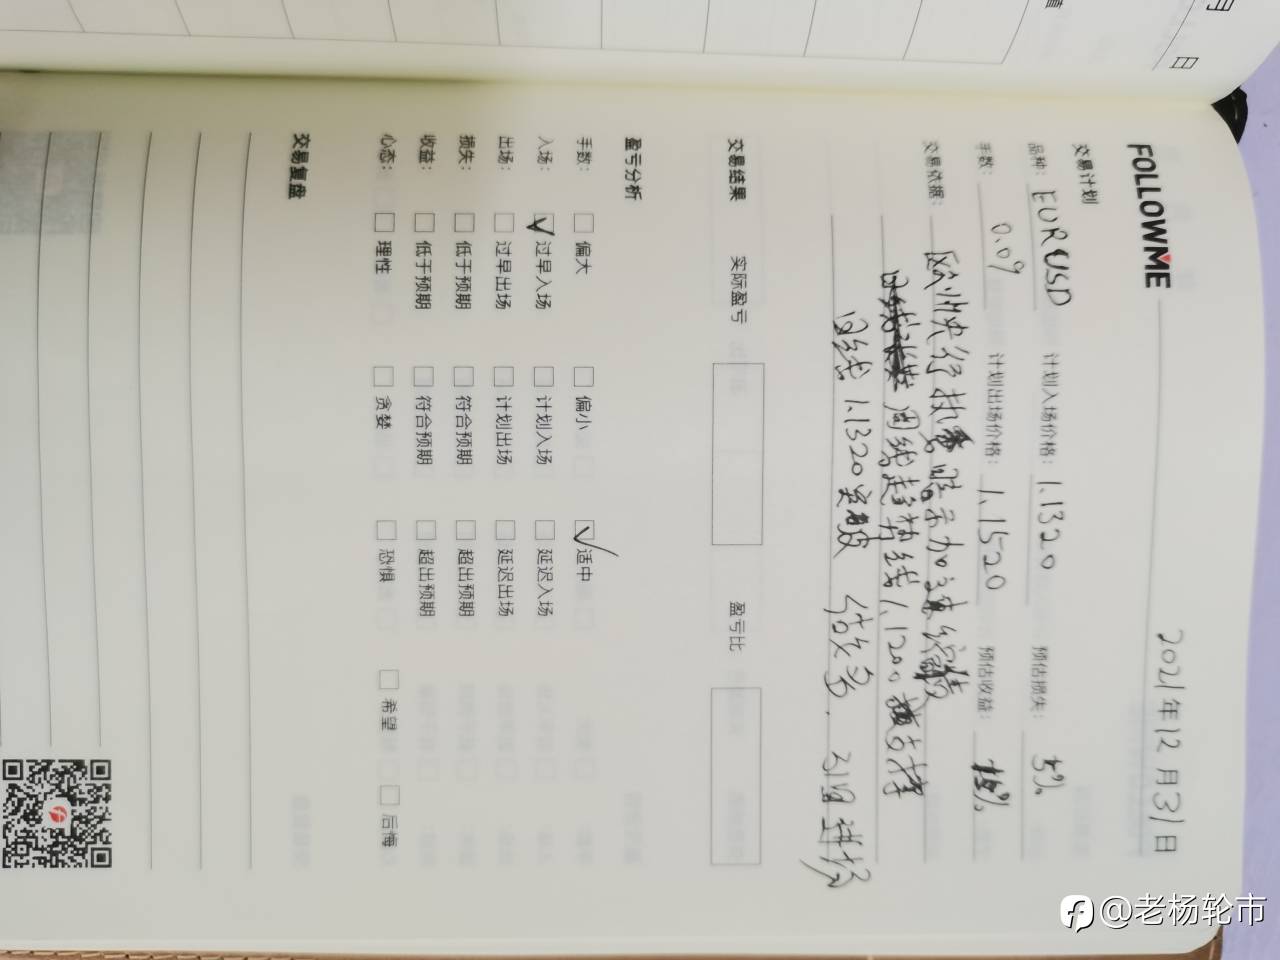 FOLLOWME
2021年12月31日
交易计划
品种: EURUSD 计划入场价格: 1.1320 预估损失: 5%
手数: 0.09 计划出场价格: 1.1520 预估收益: 15%
交易依据: 欧州央行执委暗示加速缩
周线趋势线1.1200 支撑
日线1.1320突破 做多. 引回进场
交易结果 实际盈亏 盈亏比
盈亏分析
手数: 偏大 偏小 适中
入场: 过早入场 计划入场 延迟入场
出场: 过早出场 计划出场 延迟出场
损失: 低于预期 符合预期 超出预期
收益: 低于预期 符合预期 超出预期
心态: 理性 贪婪 恐惧 希望 后悔
交易复盘
月 日
@老杨轮市